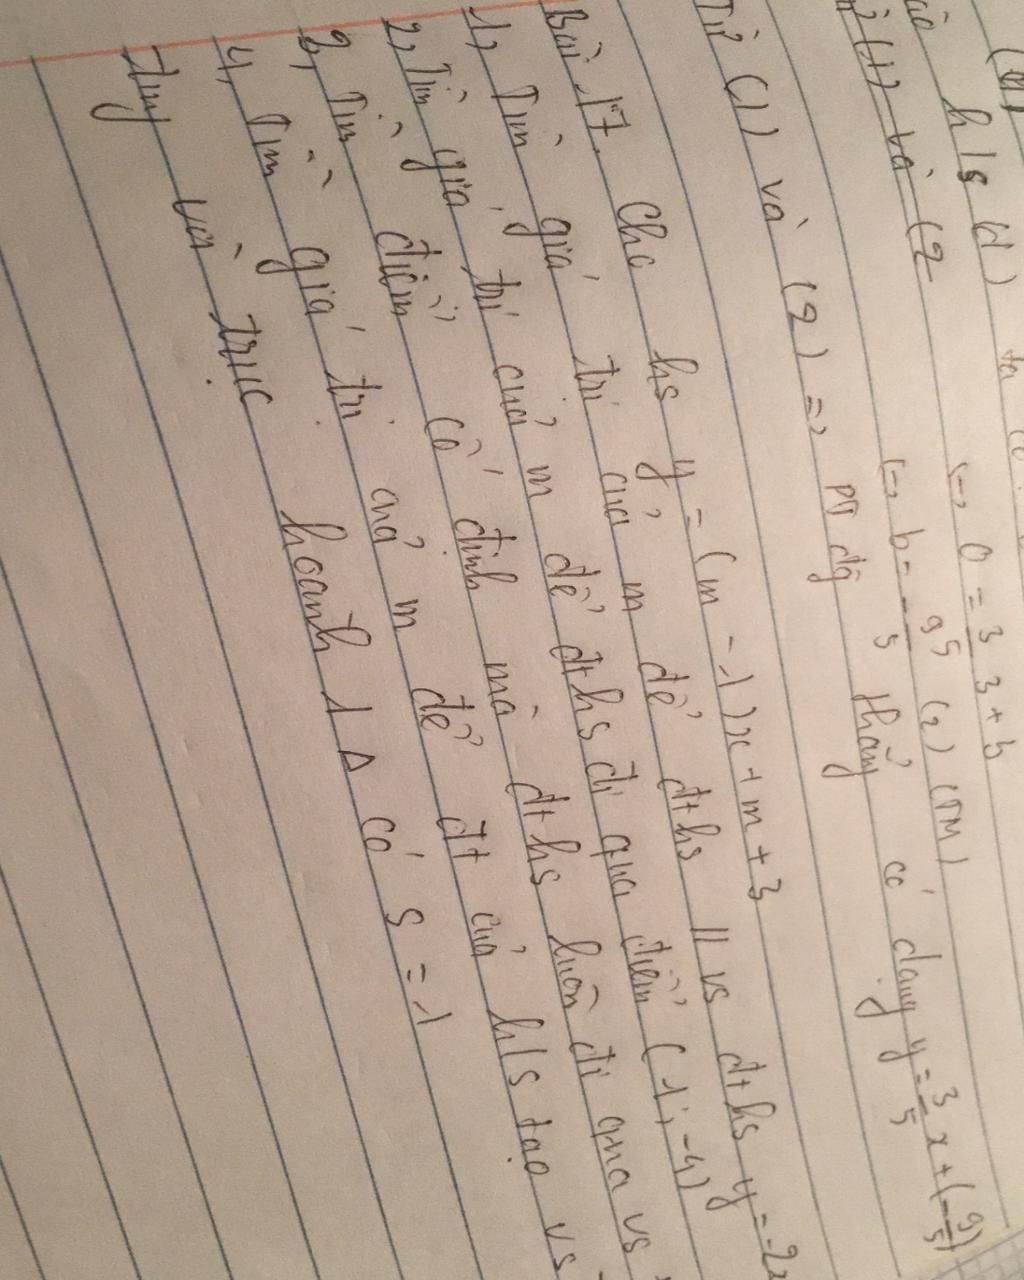 h/s (d) ta có
(1) và (2
<=> 0 = 3/5 3 + b
<=> b = -9/5 (2) (TM)
Từ (1) và (2) => PT đg thẳng có dạng y = 3/5 x + (-9/5)
Bài 17. Cho hs y = (m - 1)x + m + 3
1, Tìm giá trị của m để đths // vs đths y = -2x
2, Tìm giá trị của m để đths đi qua điểm (1; -4)
3, Tìm điểm cố định mà đths luôn đi qua vs
4, Tìm giá trị của m để đt của h/s tạo vs
trục hoành 1 Δ có S = 1